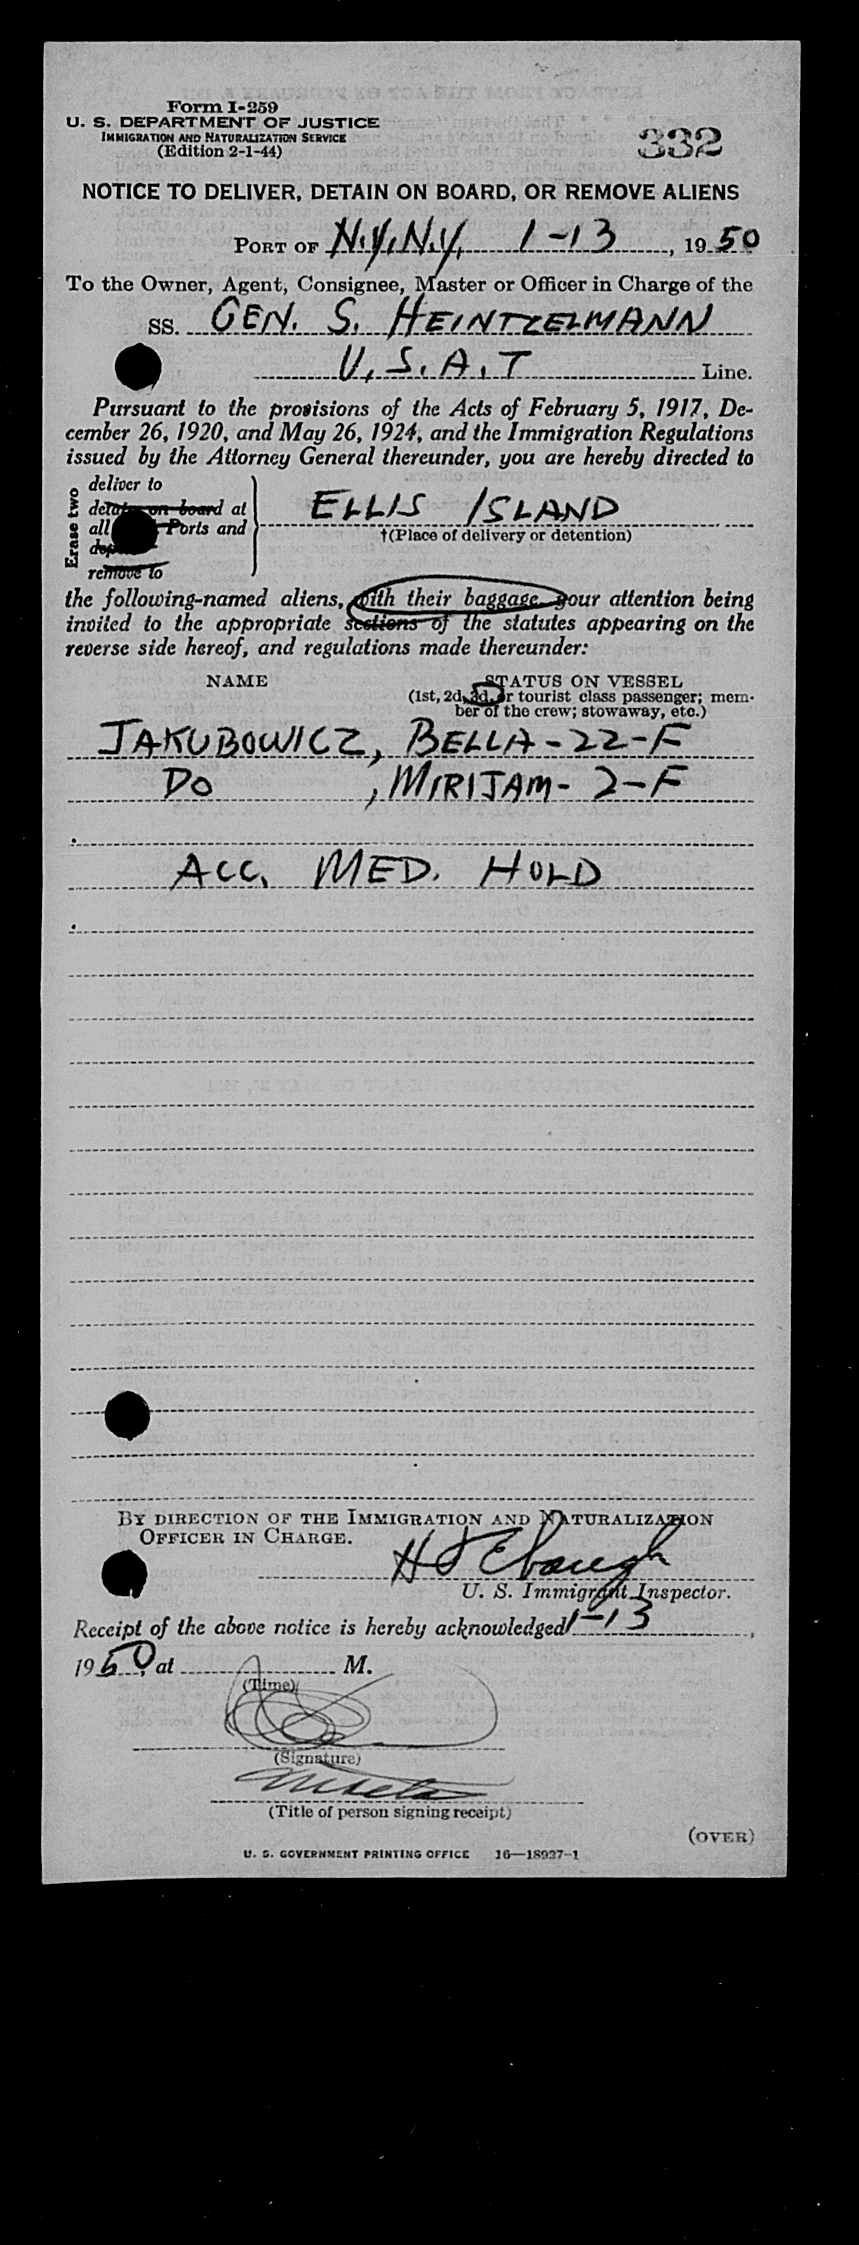 Form I-259
U. S. DEPARTMENT OF JUSTICE
IMMIGRATION AND NATURALIZATION SERVICE
(Edition 2-1-44)
332
NOTICE TO DELIVER, DETAIN ON BOARD, OR REMOVE ALIENS
PORT OF N.Y.N.Y. 1-13, 1950
To the Owner, Agent, Consignee, Master or Officer in Charge of the
SS. GEN. S. HEINTZELMANN
U.S.A.T Line.
Pursuant to the provisions of the Acts of February 5, 1917, De-
cember 26, 1920, and May 26, 1924, and the Immigration Regulations
issued by the Attorney General thereunder, you are hereby directed to
Erase two
deliver to
detain on board at
all Ports and
remove to
ELLIS ISLAND
†(Place of delivery or detention)
the following-named aliens, with their baggage, your attention being
invited to the appropriate sections of the statutes appearing on the
reverse side hereof, and regulations made thereunder:
NAME
STATUS ON VESSEL
(1st, 2d, 3d, or tourist class passenger; mem-
ber of the crew; stowaway, etc.)
JAKUBOWICZ, BELLA-22-F
DO , MIRIJAM- 2-F
ACC. MED. HOLD
BY DIRECTION OF THE IMMIGRATION AND NATURALIZATION
OFFICER IN CHARGE.
U. S. Immigrant Inspector.
Receipt of the above notice is hereby acknowledged 1-13,
1950, at M.
(Time)
(Signature)
(Title of person signing receipt)
(OVER)
U. S. GOVERNMENT PRINTING OFFICE 16—18927-1